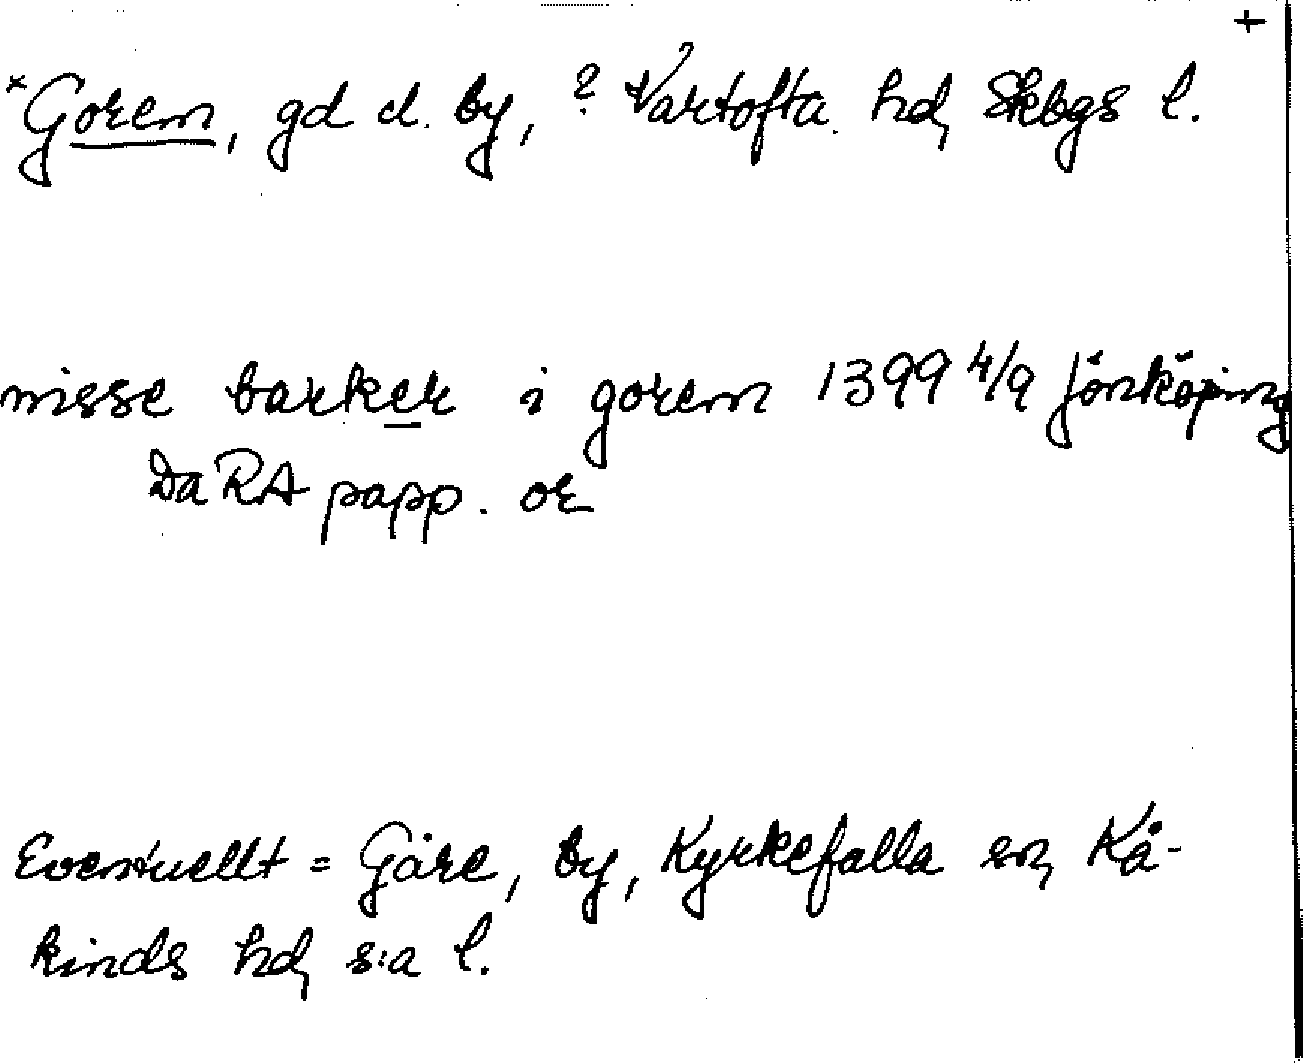 +
*Gorem, gd el. by, ? Vartofta hd, Skbgs l.
nisse barker i gorem 1399 4/9 Jönköping
Da RA papp. or
Eventuellt = Gåre, by, Kyrkefalla sn, Kå-
kinds hd, s:a l.